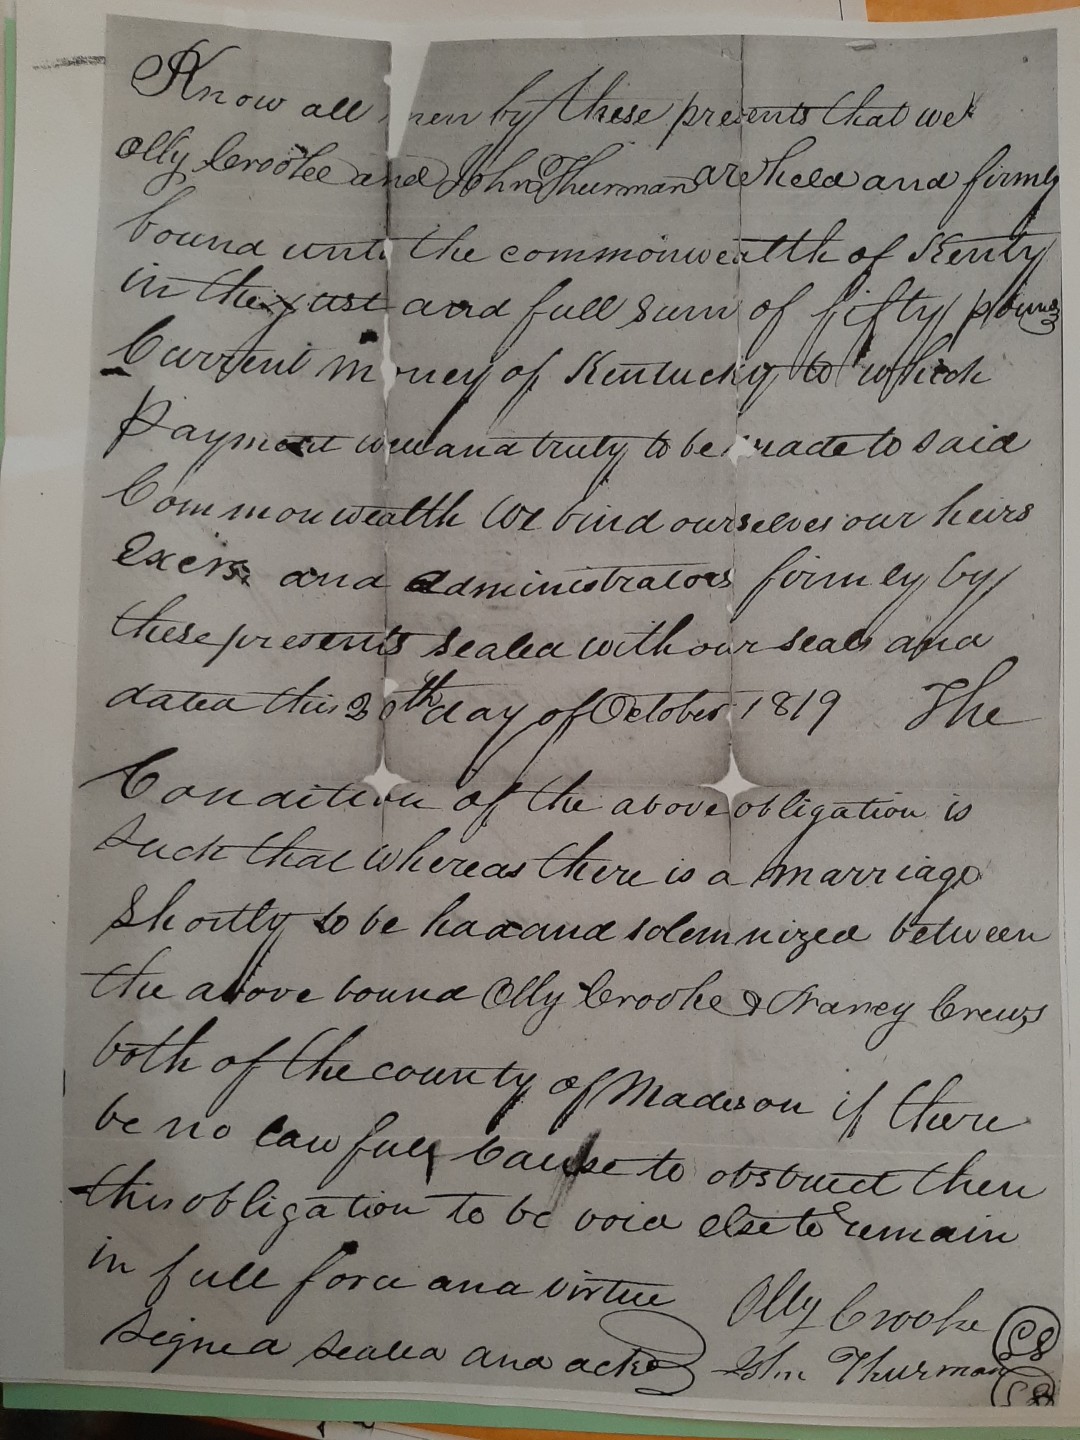 Know all men by these presents that we
Olly Crooke and John Thurman are held and firmly
bound unto the commonwealth of Kenty
in the just and full sum of fifty pounds
Current money of Kentucky to which
Payment well and truly to be made to said
Commonwealth We bind ourselves our heirs
Exers. and administrators firmly by
these presents sealed with our seals and
dated this 30th day of October 1819 The
Condition of the above obligation is
such that whereas there is a marriage
Shortly to be had and solemnized between
the above bound Olly Crooke & Nancy Crews
both of the county of Madison if there
be no law full Cause to obstruct then
this obligation to be void else to remain
in full force and virtue
Olly Crooke
signed sealed and ackd
John Thurman